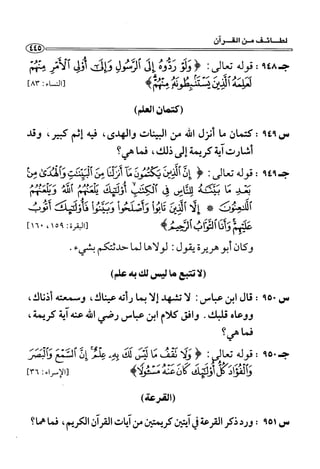 لطائف من القرآن
٤٤٥
جـ ٩٤٨ : قوله تعالى: ﴿ وَلَوْ رَدُّوهُ إِلَى ٱلرَّسُولِ وَإِلَىٰٓ أُو۟لِى ٱلْأَمْرِ مِنْهُمْ
لَعَلِمَهُ ٱلَّذِينَ يَسْتَنۢبِطُونَهُۥ مِنْهُمْ ﴾ [النساء: ٨٣]
(كتمان العلم)
س ٩٤٩ : كتمان ما أنزل الله من البينات والهدى، فيه إثم كبير، وقد
أشارت آية كريمة إلى ذلك، فما هي؟
جـ ٩٤٩ : قوله تعالى: ﴿ إِنَّ ٱلَّذِينَ يَكْتُمُونَ مَآ أَنزَلْنَا مِنَ ٱلْبَيِّنَٰتِ وَٱلْهُدَىٰ مِنۢ
بَعْدِ مَا بَيَّنَّٰهُ لِلنَّاسِ فِى ٱلْكِتَٰبِ أُو۟لَٰٓئِكَ يَلْعَنُهُمُ ٱللَّهُ وَيَلْعَنُهُمُ
ٱللَّٰعِنُونَ * إِلَّا ٱلَّذِينَ تَابُوا۟ وَأَصْلَحُوا۟ وَبَيَّنُوا۟ فَأُو۟لَٰٓئِكَ أَتُوبُ
عَلَيْهِمْ وَأَنَا ٱلتَّوَّابُ ٱلرَّحِيمُ ﴾ [البقرة: ١٥٩، ١٦٠]
وكان أبو هريرة يقول: لولاها لما حدثتكم بشيء.
(لا تتبع ما ليس لك به علم)
س ٩٥٠ : قال ابن عباس: لا تشهد إلا بما رأته عيناك، وسمعته أذناك،
ووعاه قلبك. وافق كلام ابن عباس رضي الله عنه آية كريمة،
فما هي؟
جـ ٩٥٠ : قوله تعالى: ﴿ وَلَا تَقْفُ مَا لَيْسَ لَكَ بِهِۦ عِلْمٌ إِنَّ ٱلسَّمْعَ وَٱلْبَصَرَ
وَٱلْفُؤَادَ كُلُّ أُو۟لَٰٓئِكَ كَانَ عَنْهُ مَسْـُٔولًا ﴾ [الإسراء: ٣٦]
(القرعة)
س ٩٥١ : ورد ذكر القرعة في آيتين كريمتين من آيات القرآن الكريم، فما هما؟